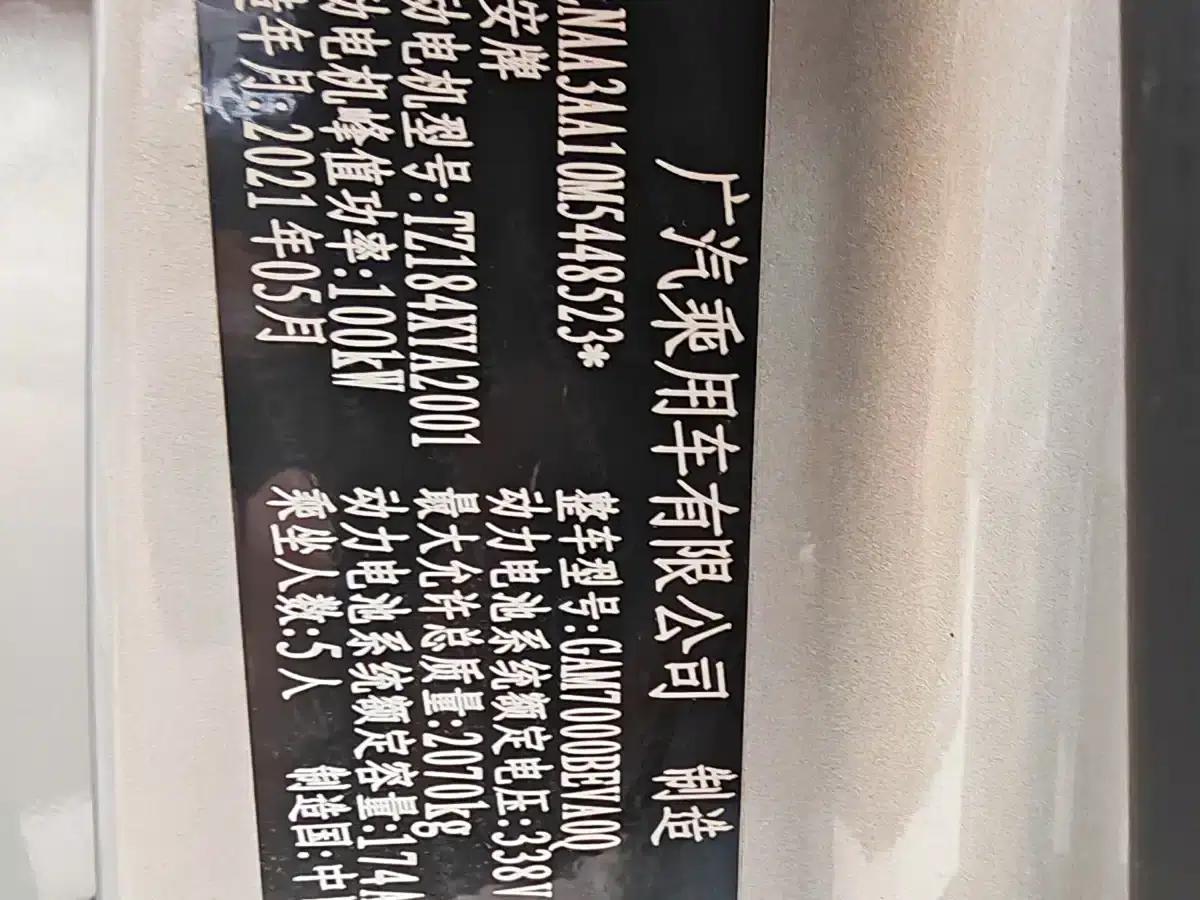 广汽乘用车有限公司 制造
NAA3AA10M5448523* 整车型号:GAM7000BEVA0Q
安牌 动力电池系统额定电压:338V
动电机型号:TZ184XYA2001 最大允许总质量:2070kg
动电机峰值功率:100kW 动力电池系统额定容量:174A
造年月:2021年05月 乘坐人数:5人 制造国:中